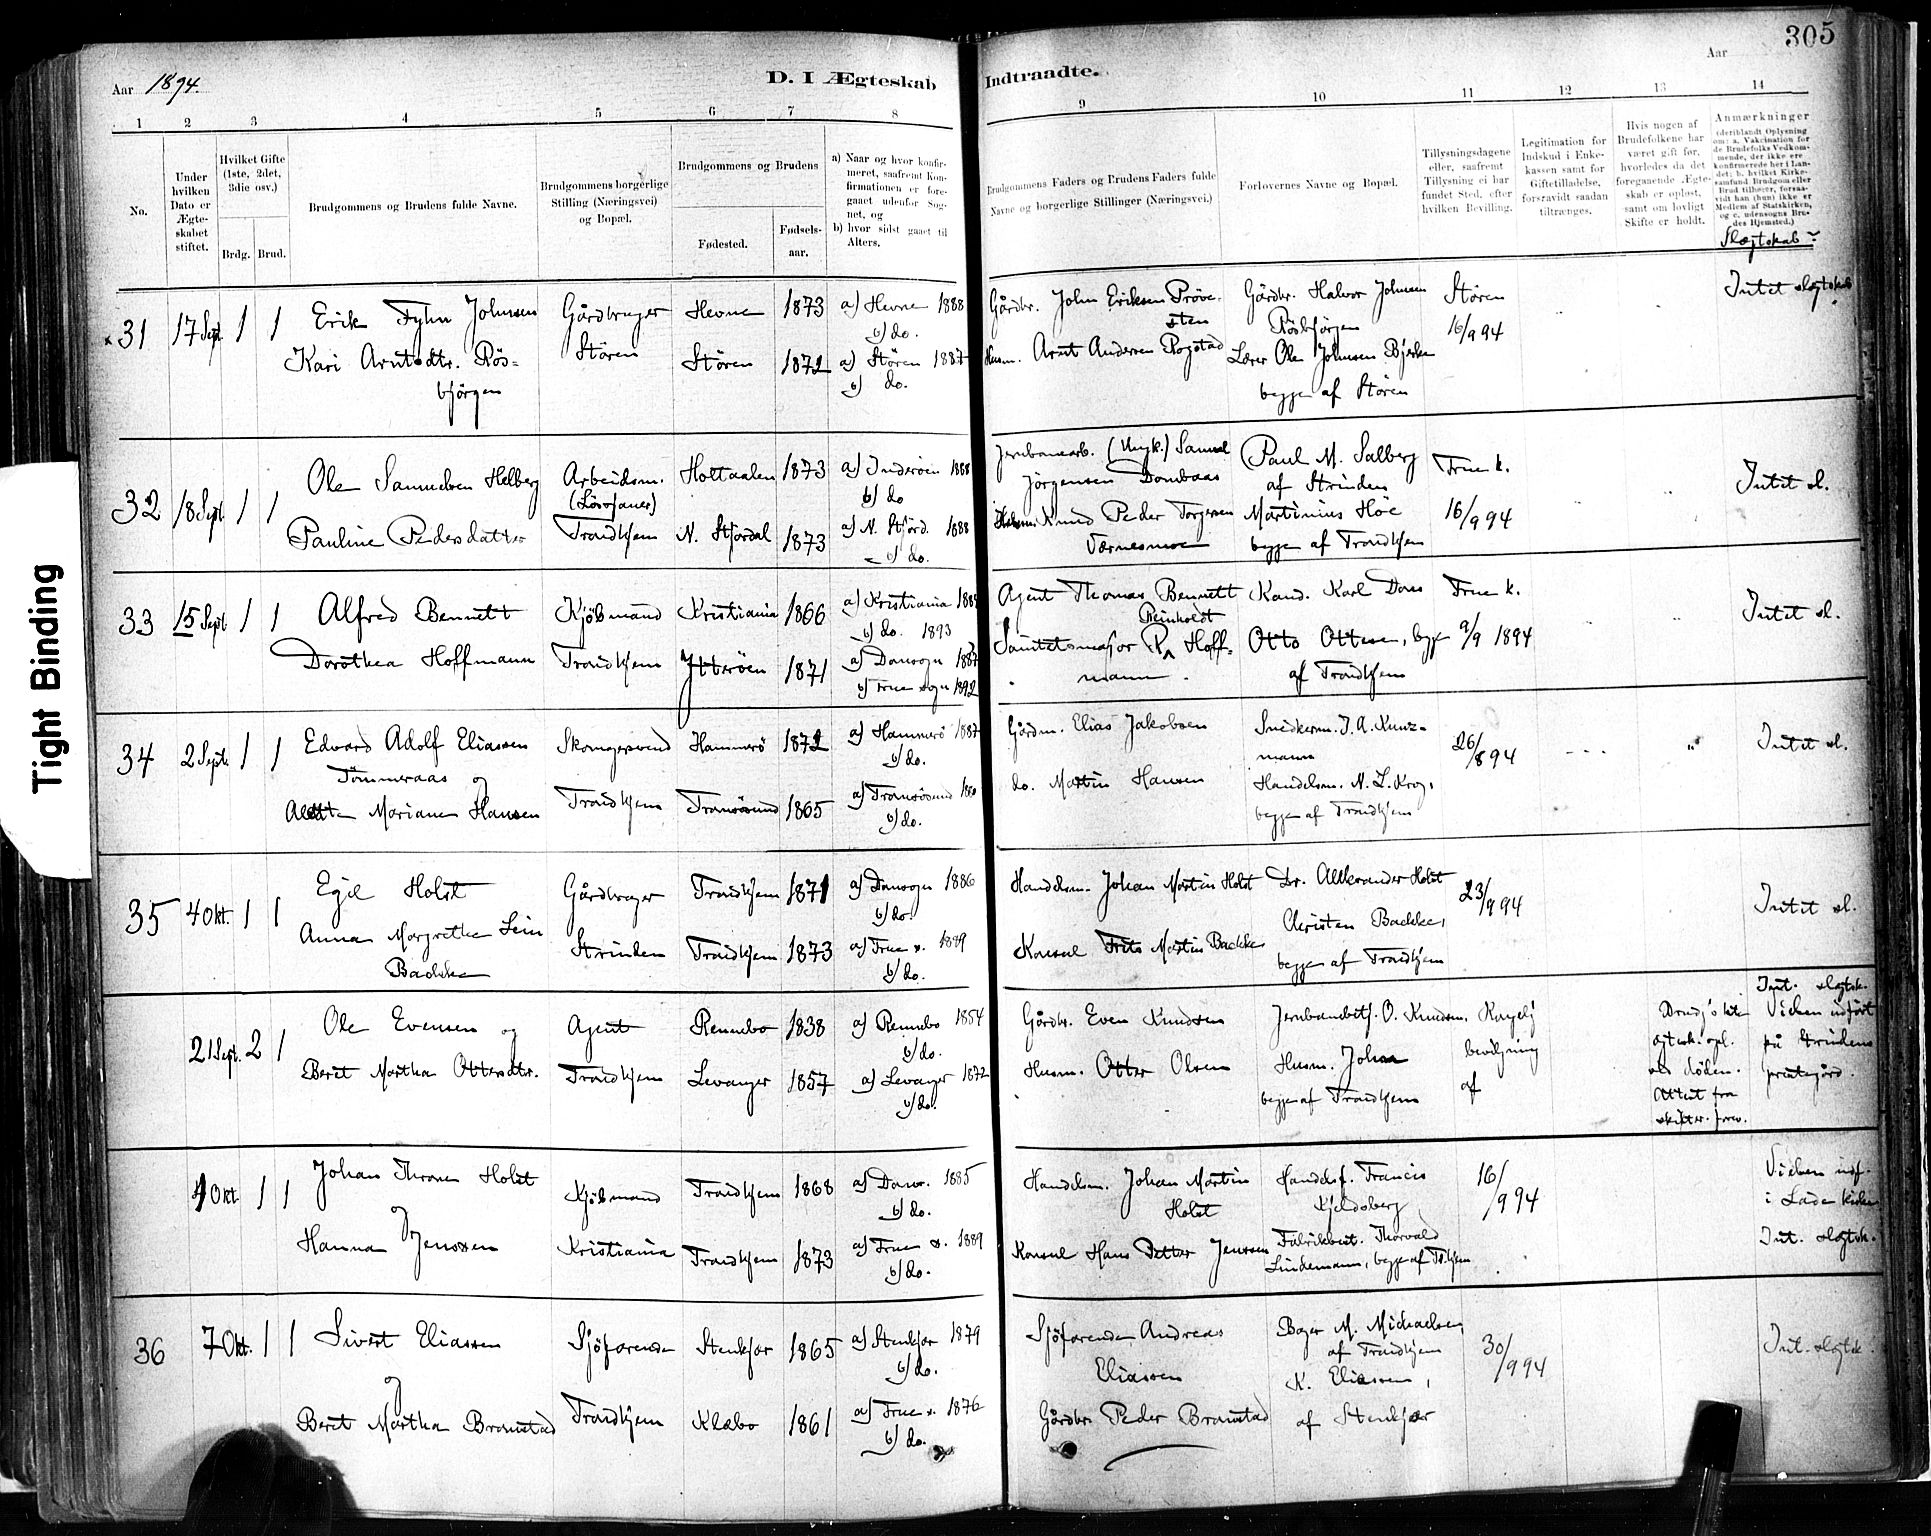 305
Aar 1894.
D. I Ægteskab Indtraadte.
Aar
1 2 3 4 5 6 7 8 9 10 11 12 13 14
No.
Under hvilken Dato er Ægteskabet stiftet.
Hvilket Gifte (1ste, 2det, 3die osv.)
Brdg. Brud.
Brudgommens og Brudens fulde Navne.
Brudgommens borgerlige Stilling (Næringsvei) og Bopæl.
Brudgommens og Brudens
Fødested.
Fødsels-aar.
a) Naar og hvor konfirmeret, saafremt Konfirmationen er foregaaet udenfor Sognet, og
b) hvor sidst gaaet til Alters.
Brudgommens Faders og Brudens Faders fulde Navne og borgerlige Stillinger (Næringsvei.)
Forlovernes Navne og Bopæl.
Tillysningsdagene eller, saafremt Tillysning ei har fundet Sted, efter hvilken Bevilling.
Legitimation for Indskud i Enkekassen samt for Giftetilladelse, forsaavidt saadan tiltrænges.
Hvis nogen af Brudefolkene har været gift før, hvorledes da det foregaaende Ægteskab er opløst, samt om lovligt Skifte er holdt.
Anmærkninger
(deriblandt Oplysning om: a. Vakcination for de Brudefolks Vedkommende, der ikke ere konfirmerede her i Landet; b. hvilket Kirkesamfund Brudgom eller Brud tilhører, forsaavidt han (hun) ikke er Medlem af Statskirken, og c. udensogns Brudes Hjemsted.)
Slægtskab?
31 17 Sept 1 1 Erik Fyhn Johnsen Gårdbruger Hevne 1873 a) Hevne 1888 b) do. Gårdbr. John Eriksen Prøvesten Gårdbr. Halvor Johnsen Rösbjörgen Stören 16/9 94 Intet slegtskab
Kari Arntsdtr. Rösbjörgen Stören Stören 1872 a) Stören 1887 b) do. Husm. Arnt Andersen Rogstad Lærer Ole Johnsen Bjerke begge af Stören
32 18 Sept 1 1 Ole Samuelsen Helberg Arbeidsm. (Lösesjauer) Holtaalen 1873 a) Inderöen 1888 b) do Jernbanearb. Samuel Jörgensen Dombaas Paul M. Salberg af Strinden Frue k. 16/9 94 Intet sl.
Pauline Pedersdatter Trondhjem N. Stjördal 1873 a) N. Stjörd. 1888 b) do. Peder Torgersen Værnesmoe Martinius Höe begge af Trondhjem
33 15 Sept 1 1 Alfred Bennett Kjöbmand Kristiania 1866 a) Kristiania b) do. 1893 Agent Thomas Bennett Kand. Karl Frue k. 9/9 1894 Intet sl.
Dorothea Hoffmann Trondhjem Ytterøen 1871 a) Domsogn 1887 b) Frue sogn 1892 Sanitetsmajor Reinholdt Hoffmann Otto Ottesen, begge af Trondhjem
34 2 Sept 1 1 Edvard Adolf Eliassen Tömmeraas og Skomagersvend Hammerö 1872 a) Hammerö 1887 b) do. Gårdm. Elias Jakobsen Snedkerm. J. A. Kunzmann 26/8 94 Intet sl.
Aletta Mariane Hansen Trondhjem Tranösund 1865 a) Tranösund 1880 b) do. do. Martin Hansen Handelsm. N. L. Krog, begge af Trondhjem
35 4 Okt. 1 1 Egil Holst Gårdbruger Trondhjem 1871 a) Domsogn 1886 b) do. Handelsm. Johan Martin Holst Dr. Alexander Holst 23/9 94 Intet sl.
Anna Margrethe Lein Backke Strinden Trondhjem 1873 a) Frue s. 1889 b) do. Konsul Frits Martin Backke Christen Backke, begge af Trondhjem
21 Sept. 2 1 Ole Evensen og Agent Rennebo 1838 a) Rennebo 1854 b) do. Gårdbr. Even Knudsen Jernbanebetj. O. Knudsen, Kongelig bevilgning af ægtesk. opl. ved döden. Attest fra skifter. forev. Int. slegtsk. Vielsen udført på Strindens prestegård.
Beret Martha Ottersdtr. Trondhjem Levanger 1857 a) Levanger 1872 b) do. Husm. Otter Olsen Husm. Johan begge af Trondhjem
4 Okt. 1 1 Johan Thrane Holst og Kjöbmand Trondhjem 1868 a) Doms. 1885 b) do. Handelsm. Johan Martin Holst Handelsf. Francis Kjeldsberg 16/9 94 Vielsen udf. i Lade kirke
Hanna Jenssen Kristiania Trondhjem 1873 a) Frue s. 1889 b) do. Konsul Hans Petter Jenssen Fabrikbest. Thorvald Lindemann, begge af T.hjem Int. slegtsk.
36 7 Okt. 1 1 Sivert Eliassen og Sjöfarende Stenkjær 1865 a) Stenkjær 1879 b) do. Sjöfarende Andreas Eliassen Bager M. Michaelsen, af Trondhjem 30/9 94 Int. slegtsk.
Beret Martha Bromstad Trondhjem Klæbo 1861 a) Frue s. 1876 b) do. Gårdbr. Peder Bromstad K. Eliassen, af Stenkjær
Tight Binding